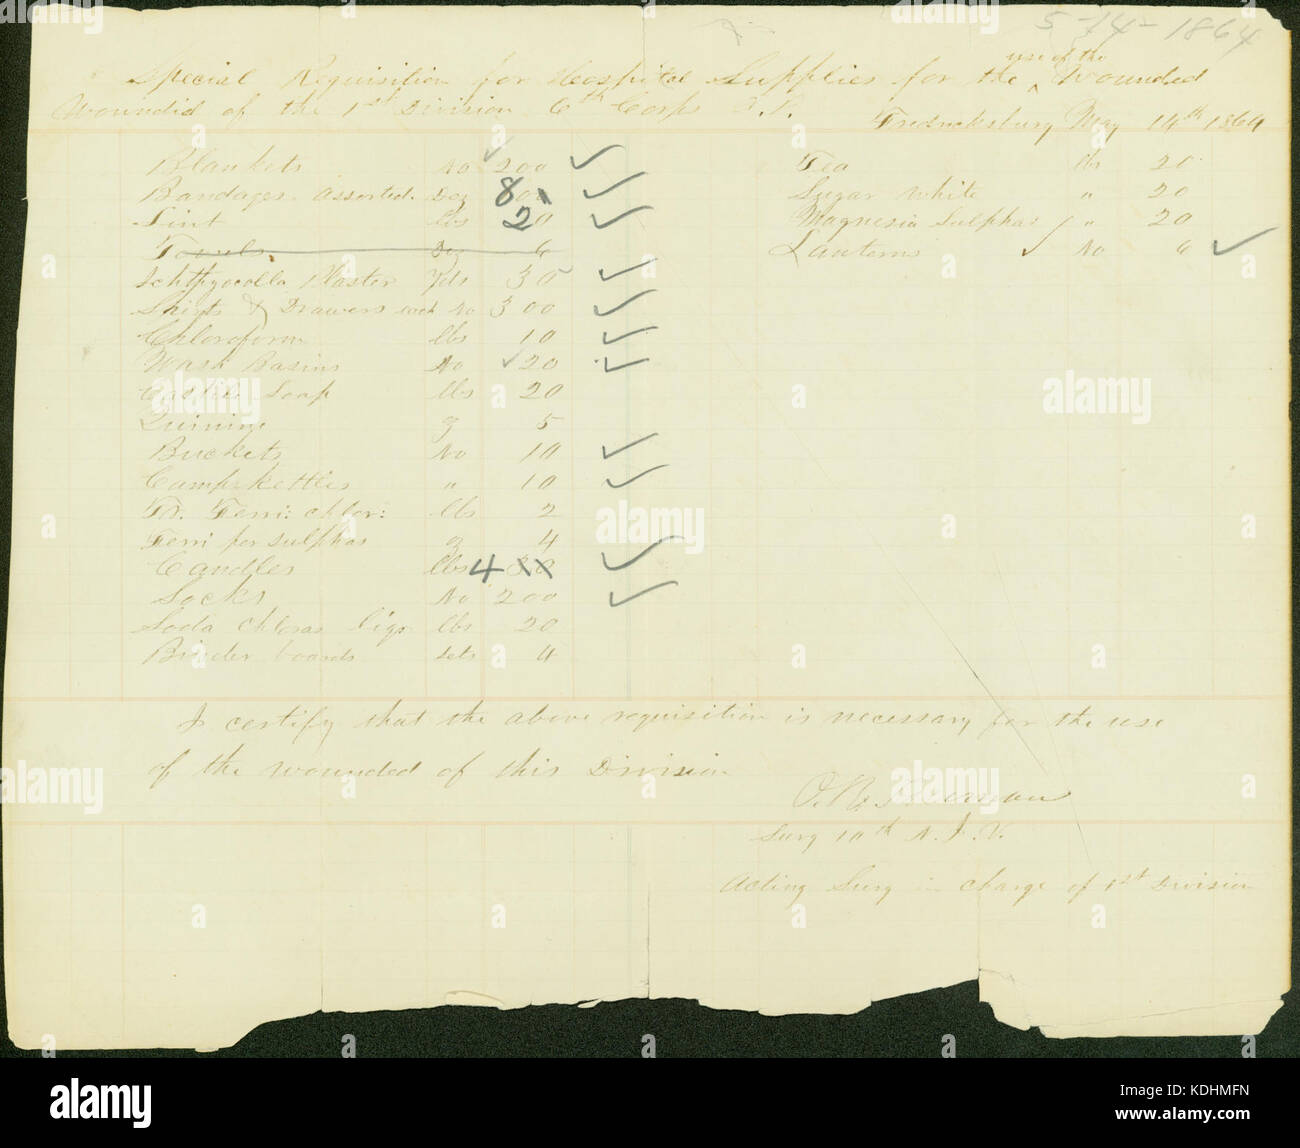 5-14-1864
use of the
Special Requisition for Hospital Supplies for the ^ Wounded
Wounded of the 1st Division 6th Corps A.P.
Fredricksburg May 14th 1864
Blankets No 200
Bandages assorted Doz 8
Lint lbs 20
Towels Doz 6
Ichthyocolla Plaster Yds 30
Shirts & Drawers each No 300
Chloroform lbs 10
Wash Basins No 20
Castile Soap lbs 20
Quinine 5
Buckets No 10
Camp kettles " 10
Tr. Ferri: chlor: lbs 2
Ferri per sulphas 4
Candles lbs 4
Socks No 200
Soda chloras liqr lbs 20
Binder boards sets 4
Tea lbs 20
Sugar White " 20
Magnesia Sulphas " 20
Lanterns No 6
I certify that the above requisition is necessary for the use
of the wounded of this Division
Surg 10th N.J.V.
Acting Surg in charge of 1st Division
alamy
alamy stock photo
KDHMFN
www.alamy.com